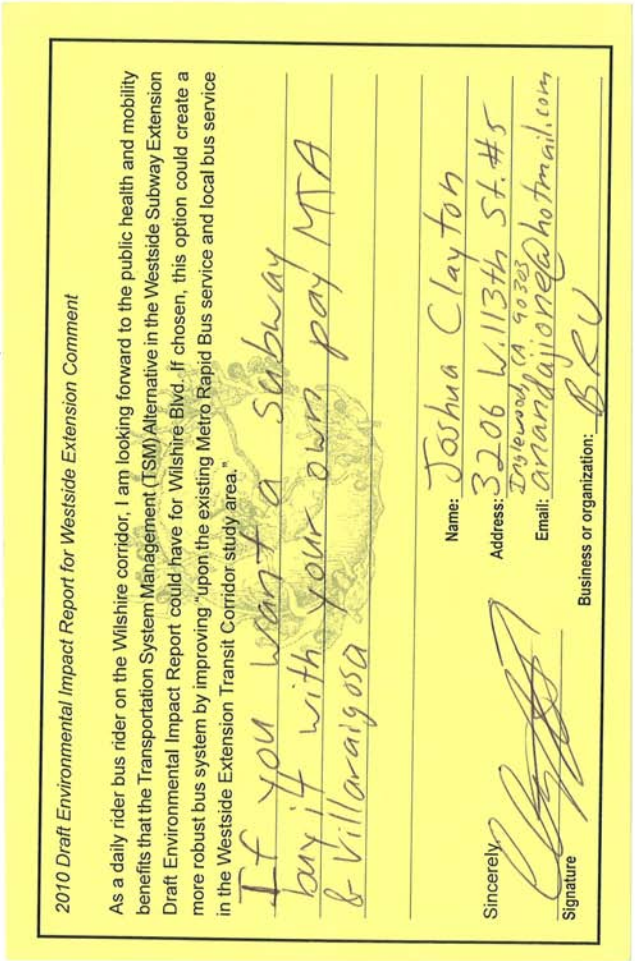 2010 Draft Environmental Impact Report for Westside Extension Comment
As a daily rider bus rider on the Wilshire corridor, I am looking forward to the public health and mobility
benefits that the Transportation System Management (TSM) Alternative in the Westside Subway Extension
Draft Environmental Impact Report could have for Wilshire Blvd. If chosen, this option could create a
more robust bus system by improving "upon the existing Metro Rapid Bus service and local bus service
in the Westside Extension Transit Corridor study area."
If you want a subway
buy it with your own pay MTA
& Villaraigosa
Name: Joshua Clayton
Address: 3206 W. 113th St. #5
Inglewood, CA 90303
Email: anandajione@hotmail.com
Sincerely,
Signature
Business or organization: BRU